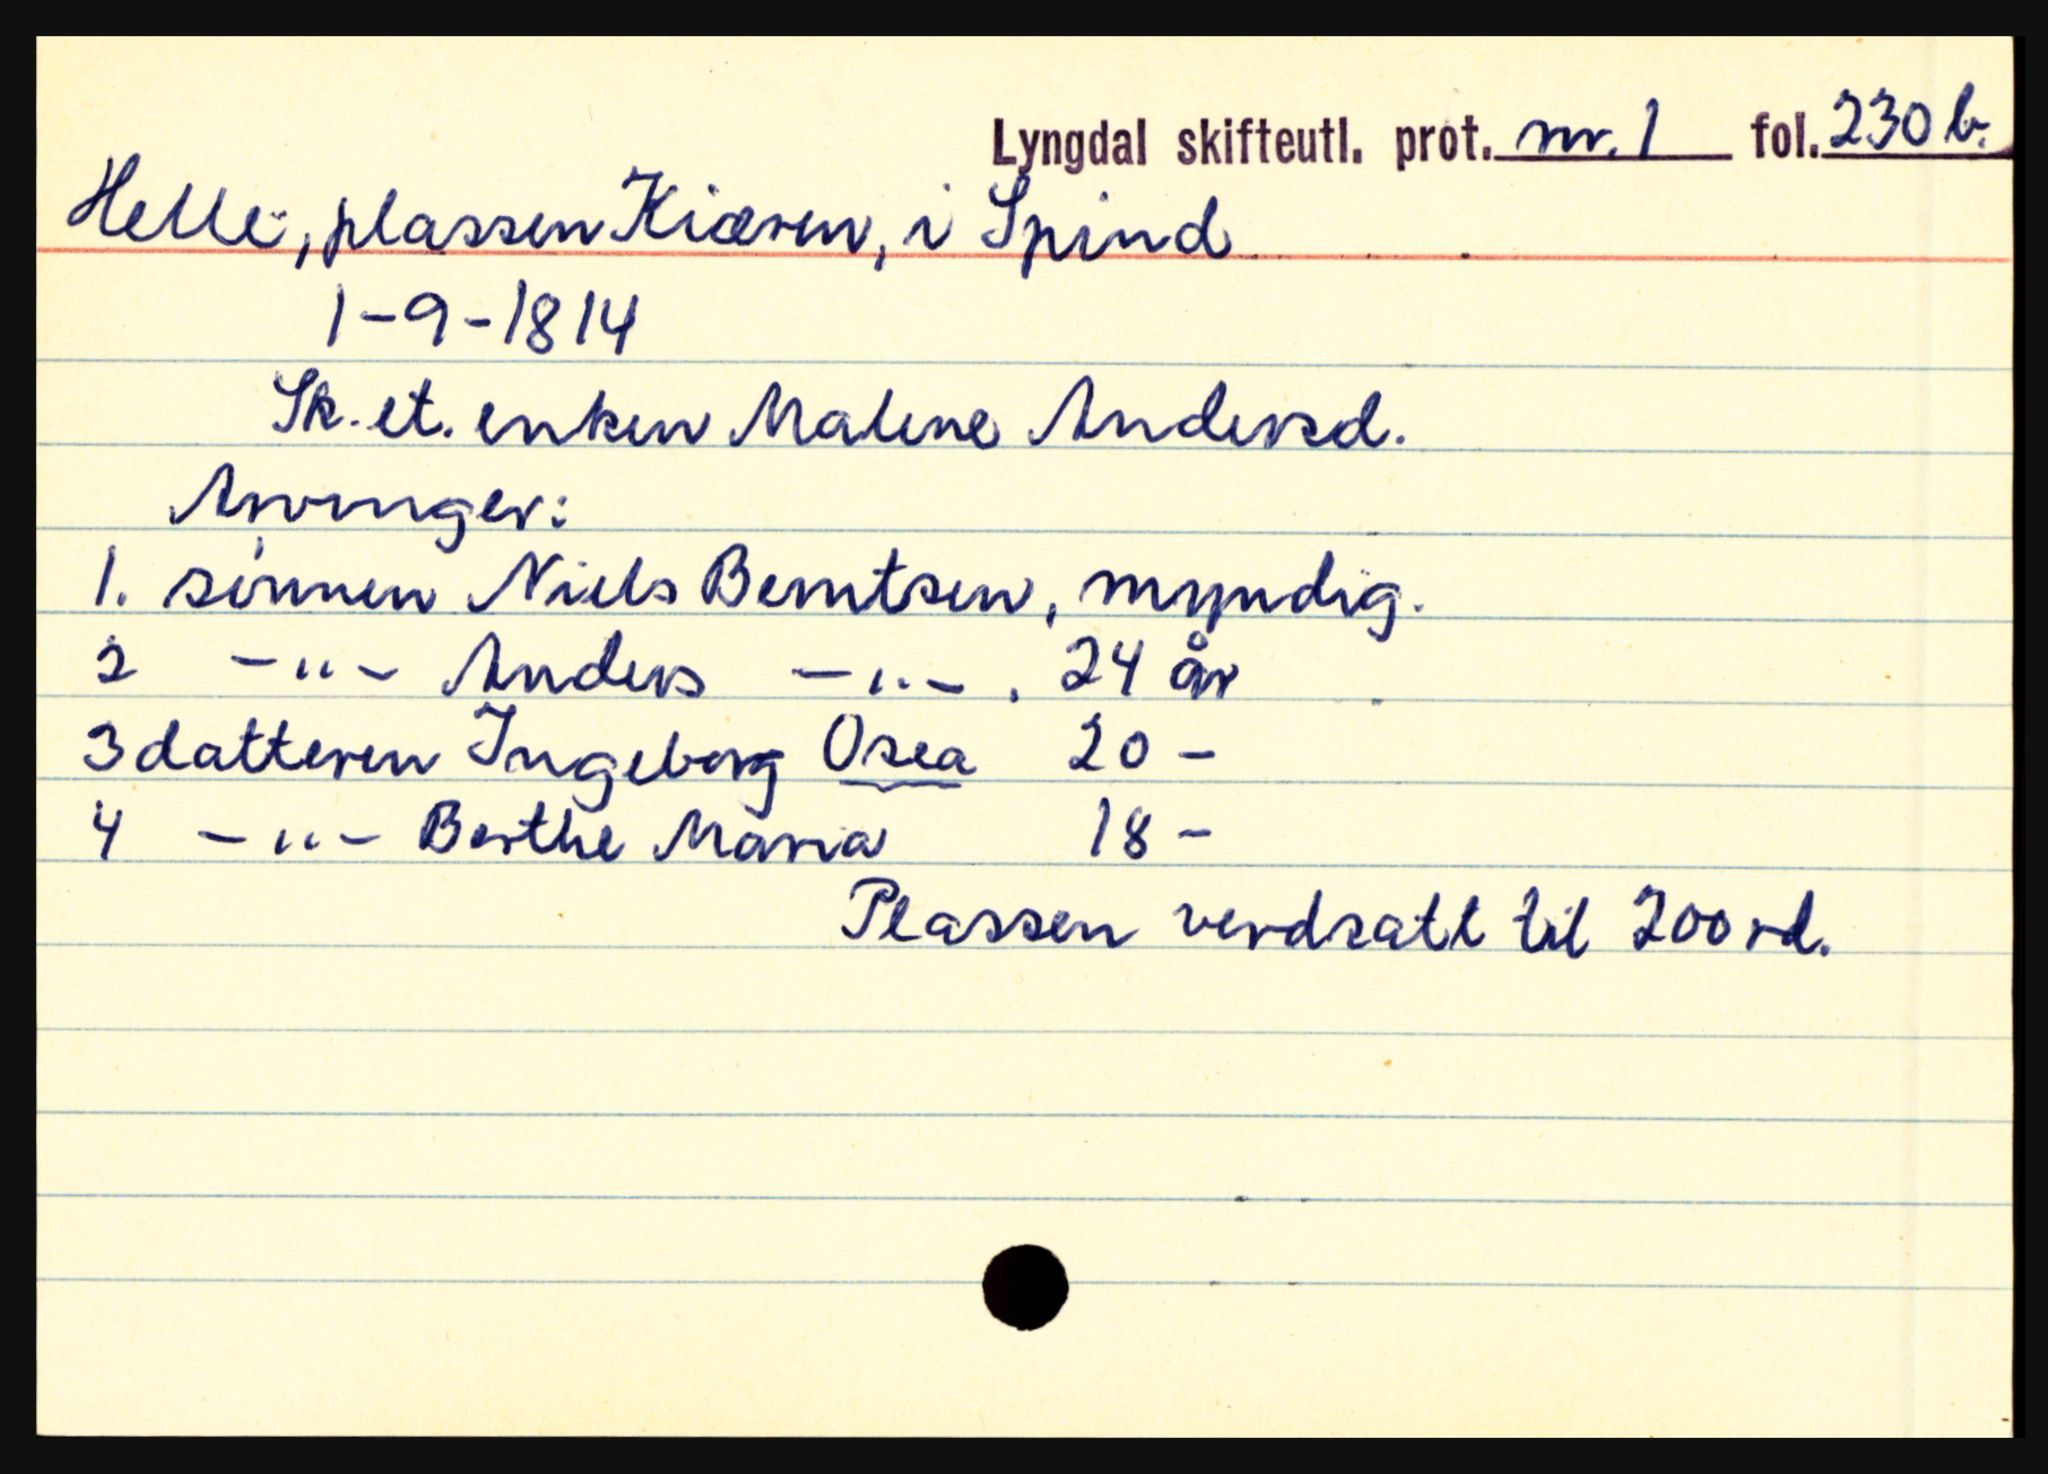 Lyngdal skifteutl. prot. nr. 1 fol. 230 b.
Helle, plassen Kiæren, i Spind
1-9-1814
Sk. et. enken Malene Andersd.
Arvinger:
1. sønnen Niels Berntsen, myndig.
2 -"- Anders -"-. 24 år
3 datteren Ingeborg Osea 20 -
4 -"- Berthe Maria 18 -
Plassen verdsatt til 200 rd.